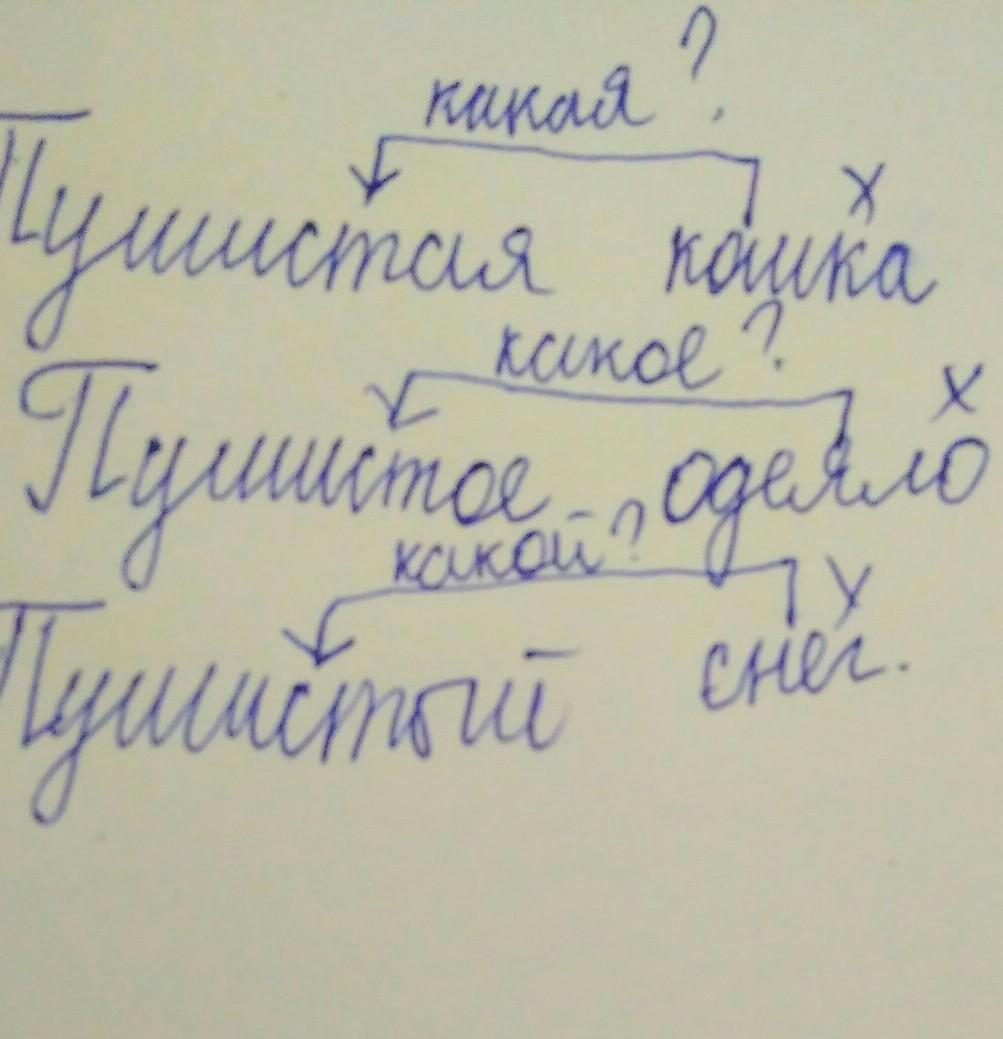 какая?
х
Пушистая кошка
какое?
х
Пушистое одеяло
какой?
х
Пушистый снег.